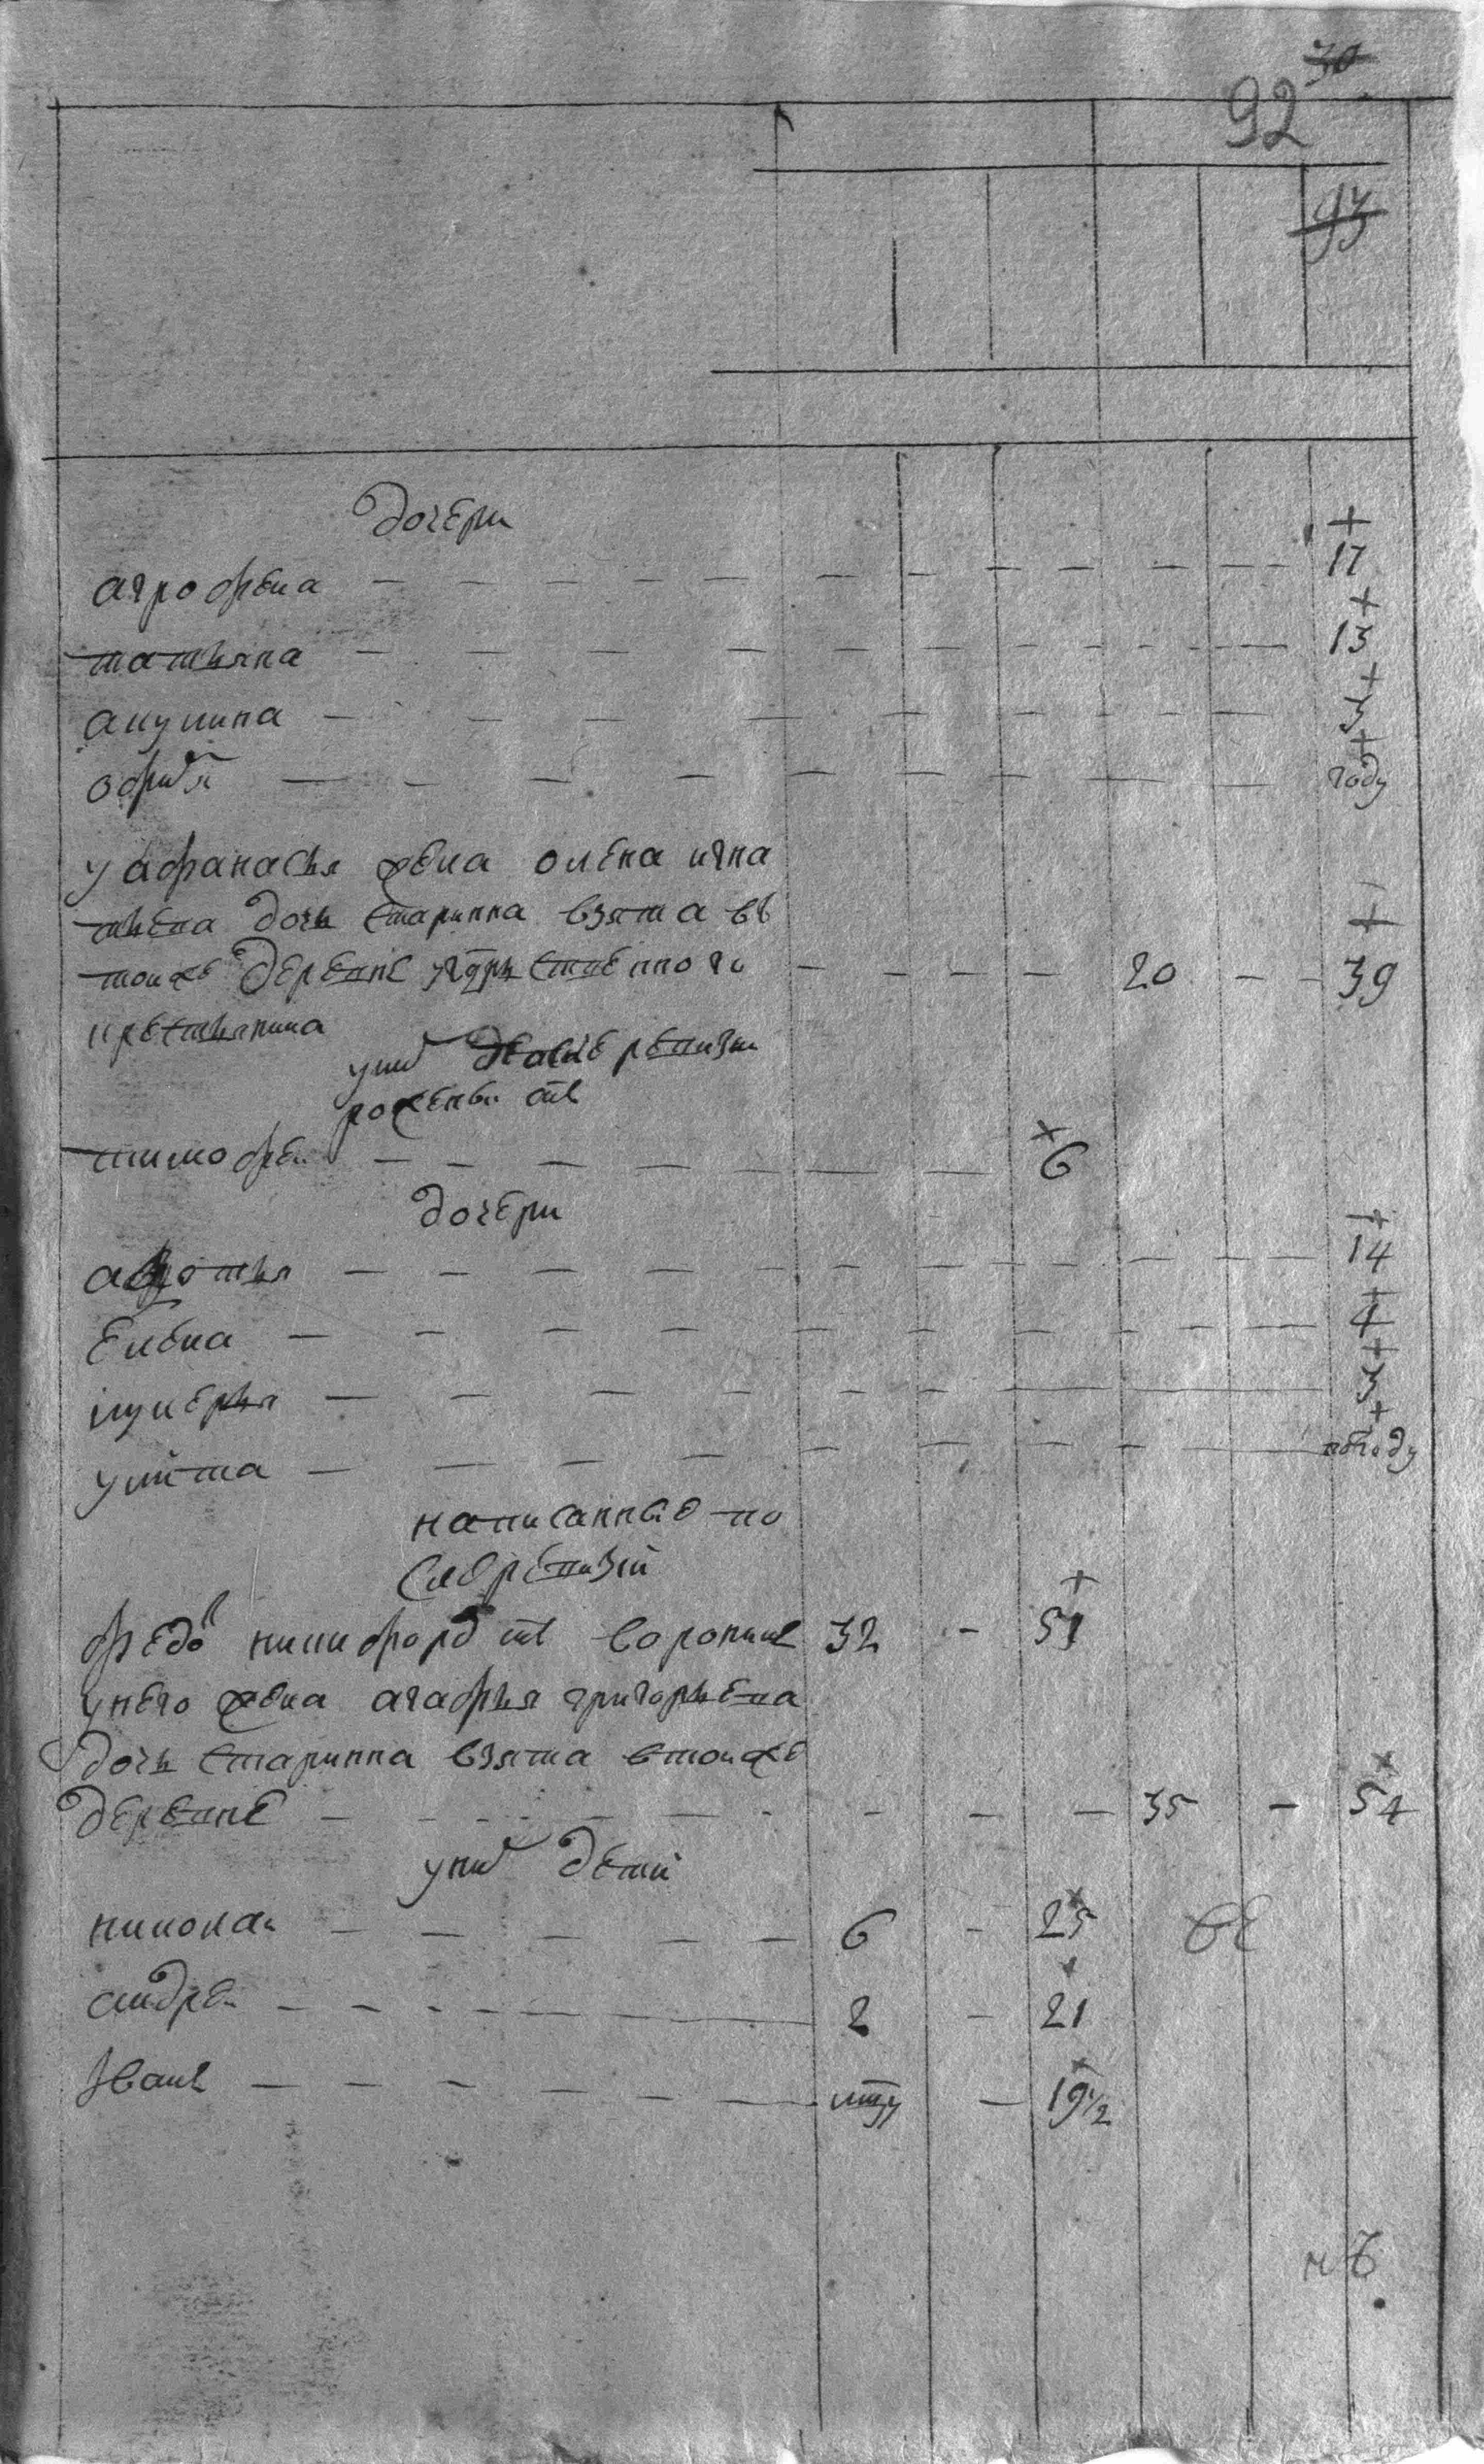 30
92
93
дочери
агрофена 17
татьяна 13
акулина 3
офимя году
у афанасья жена олена игна
тьева дочь старинна взята въ
тойже деревне 20 39
крестьянина
уних после ревизи
рожденъ
тимофей 6
дочери
авдотья 14
елена 4
лукерья 3
улита
написанные по
ревизии
федо никифоров воронин 32 51
унего жена агафья григорьева
дочь старинна взята втойже
деревне 35 54
уних дети
николай 6 25
андрей 2 21
иванъ 19 1/2